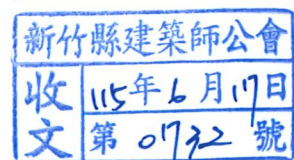 新竹縣建築師公會
收文
115年6月17日
第0732號